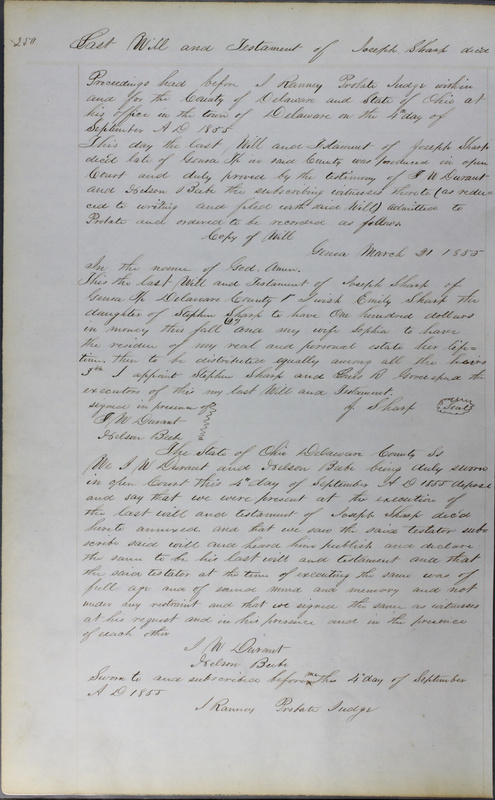 250
Last Will and Testament of Joseph Sharp dec'd
Proceedings had before I Ranney Probate Judge within
and for the County of Delaware and State of Ohio at
his office in the town of Delaware on the 4th day of
September A D 1855
This day the last Will and Testament of Joseph Sharp
dec'd late of Genoa Tp in said County was produced in open
Court and duly proved by the testimony of I W Durant
and Nelson Bebe the subscribing witnesses thereto (as redu-
ced to writing and filed with said Will) admitted to
Probate and ordered to be recorded as follows
Copy of Will
Genoa March 21 1855
In the name of God. Amen.
This the last Will and Testament of Joseph Sharp of
Genoa Tp Delaware County I wish Emily Sharp the
daughter of Stephen Sharp to have One hundred dollars
in money this fall 2nd and my wife Sophia to have
the residue of my real and personal estate her life-
time. then to be distributed equally among all the heirs
3rd I appoint Stephen Sharp and R Grove and the
executors of this my last Will and Testament.
signed in presence of J Sharp Seal
I W Durant
Nelson Bebe
The State of Ohio Delaware County Ss
We I W Durant and Nelson Bebe being duly sworn
in open Court this 4th day of September A D 1855 depose
and say that we were present at the execution of
the last will and testament of Joseph Sharp dec'd
hereto annexed and that we saw the said testator sub-
scribe said will and heard him publish and declare
the same to be his last will and testament and that
the said testator at the time of executing the same was of
full age and of sound mind and memory and not
under any restraint and that we signed the same as witnesses
at his request and in his presence and in the presence
of each other
I W Durant
Nelson Bebe
Sworn to and subscribed before me this 4th day of September
A D 1855
I Ranney Probate Judge